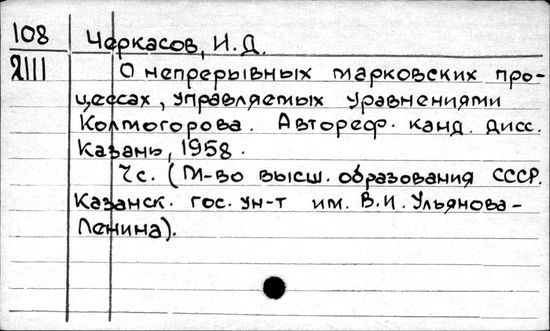 108 Черкасов, И.Д.
2111 О непрерывных марковских про-
цессах, управляемых уравнениями
Колмогорова. Автореф. канд. дисс.
Казань, 1958.
7с. (М-во высш. образования СССР.
Казанск. гос. ун-т им. В.И. Ульянова-
Ленина).